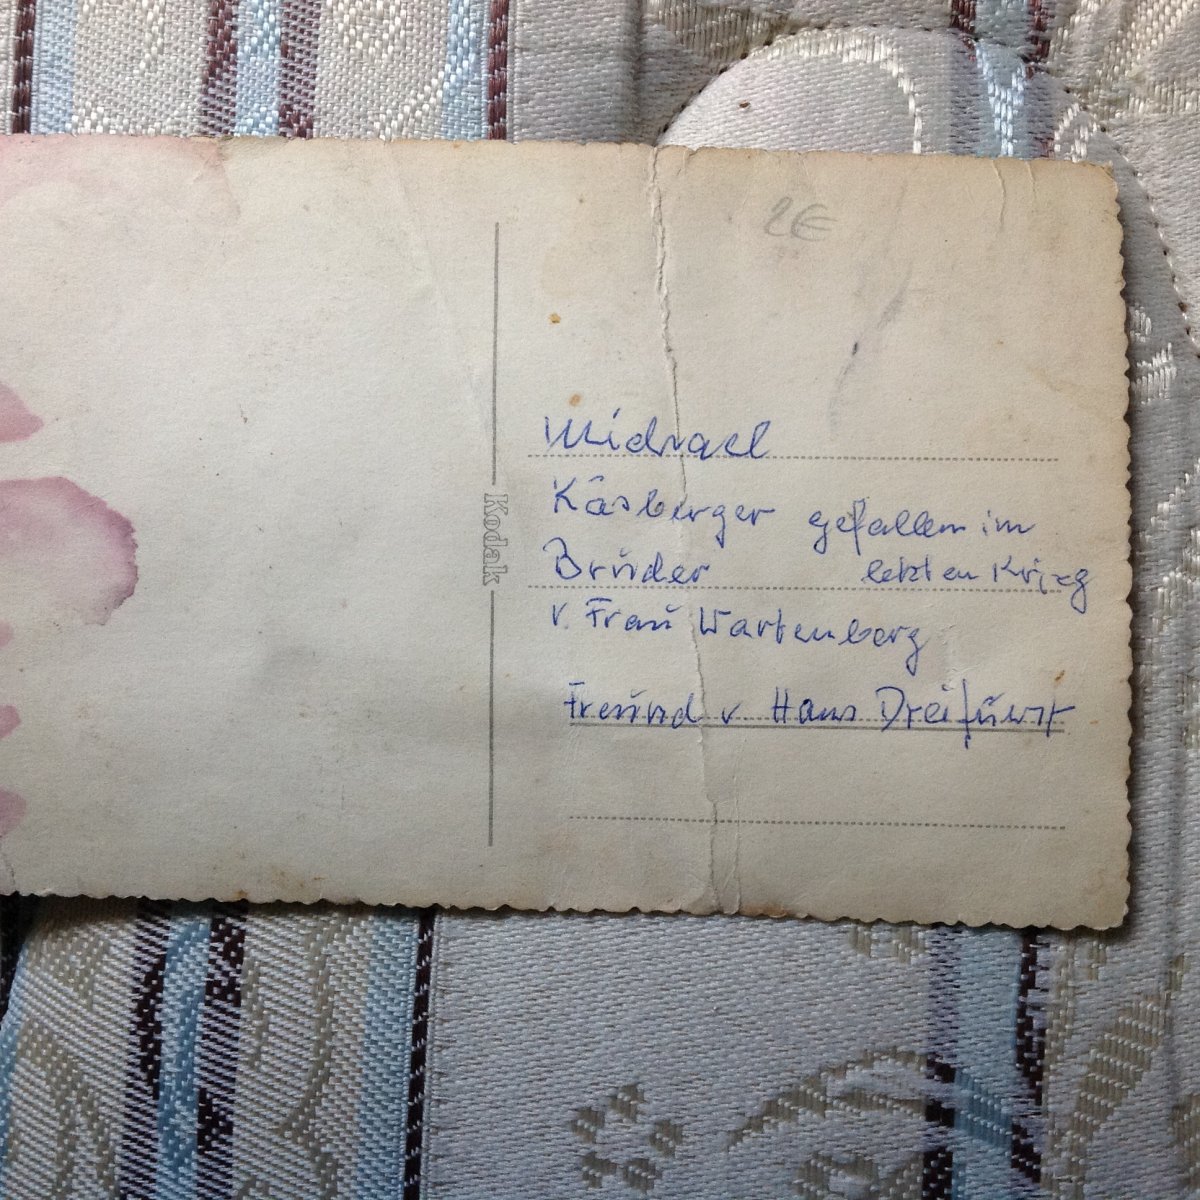 2€
Kodak
Michael
Käsberger gefallen im
Bruder letzten Krieg
v. Frau Wartenberg
Freund v Hans Dreifürst